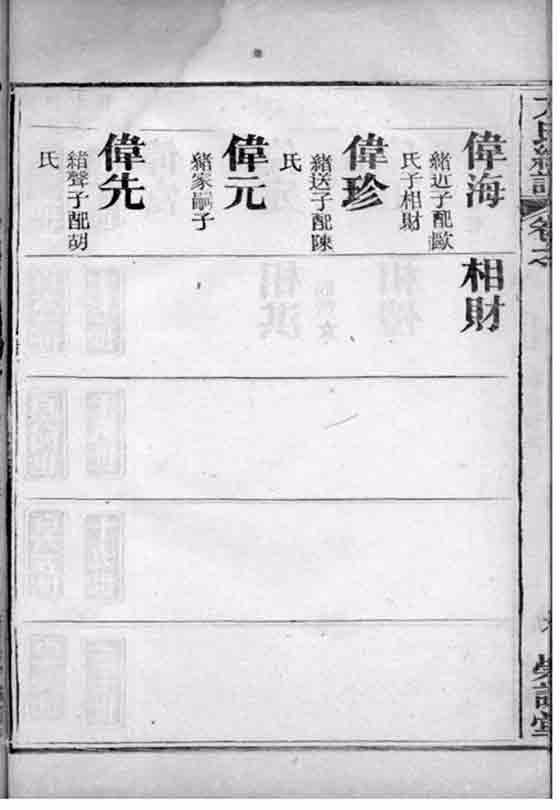 偉海
緒近子配歐
氏子相財
相財
偉珍
緒送子配陳
氏
偉元
緒家嗣子
偉先
緒聲子配胡
氏